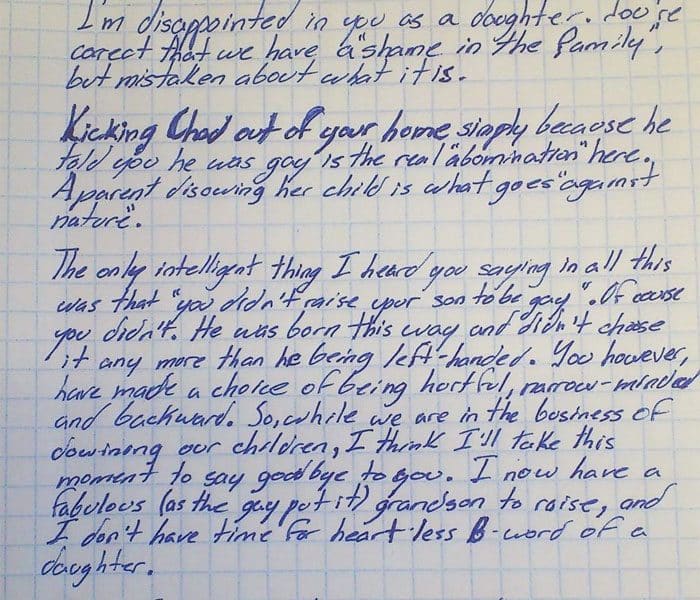 I'm disappointed in you as a daughter. You're
carect that we have a "shame in the family",
but mistaken about what it is.
Kicking Chad out of your home simply because he
told you he was gay is the real "abomination" here.
A parent disowing her child is what goes "against
nature".
The only intelligent thing I heard you saying in all this
was that "you didn't raise your son to be gay". Of couse
you didn't. He was born this way and didn't choose
it any more than he being left-handed. You however,
have made a choice of being hurtful, narrow-minded
and backward. So, while we are in the business of
dowinong our children, I think I'll take this
moment to say goodbye to you. I now have a
fabulous (as the gay put it) grandson to raise, and
I don't have time for heart-less B-word of a
daughter.